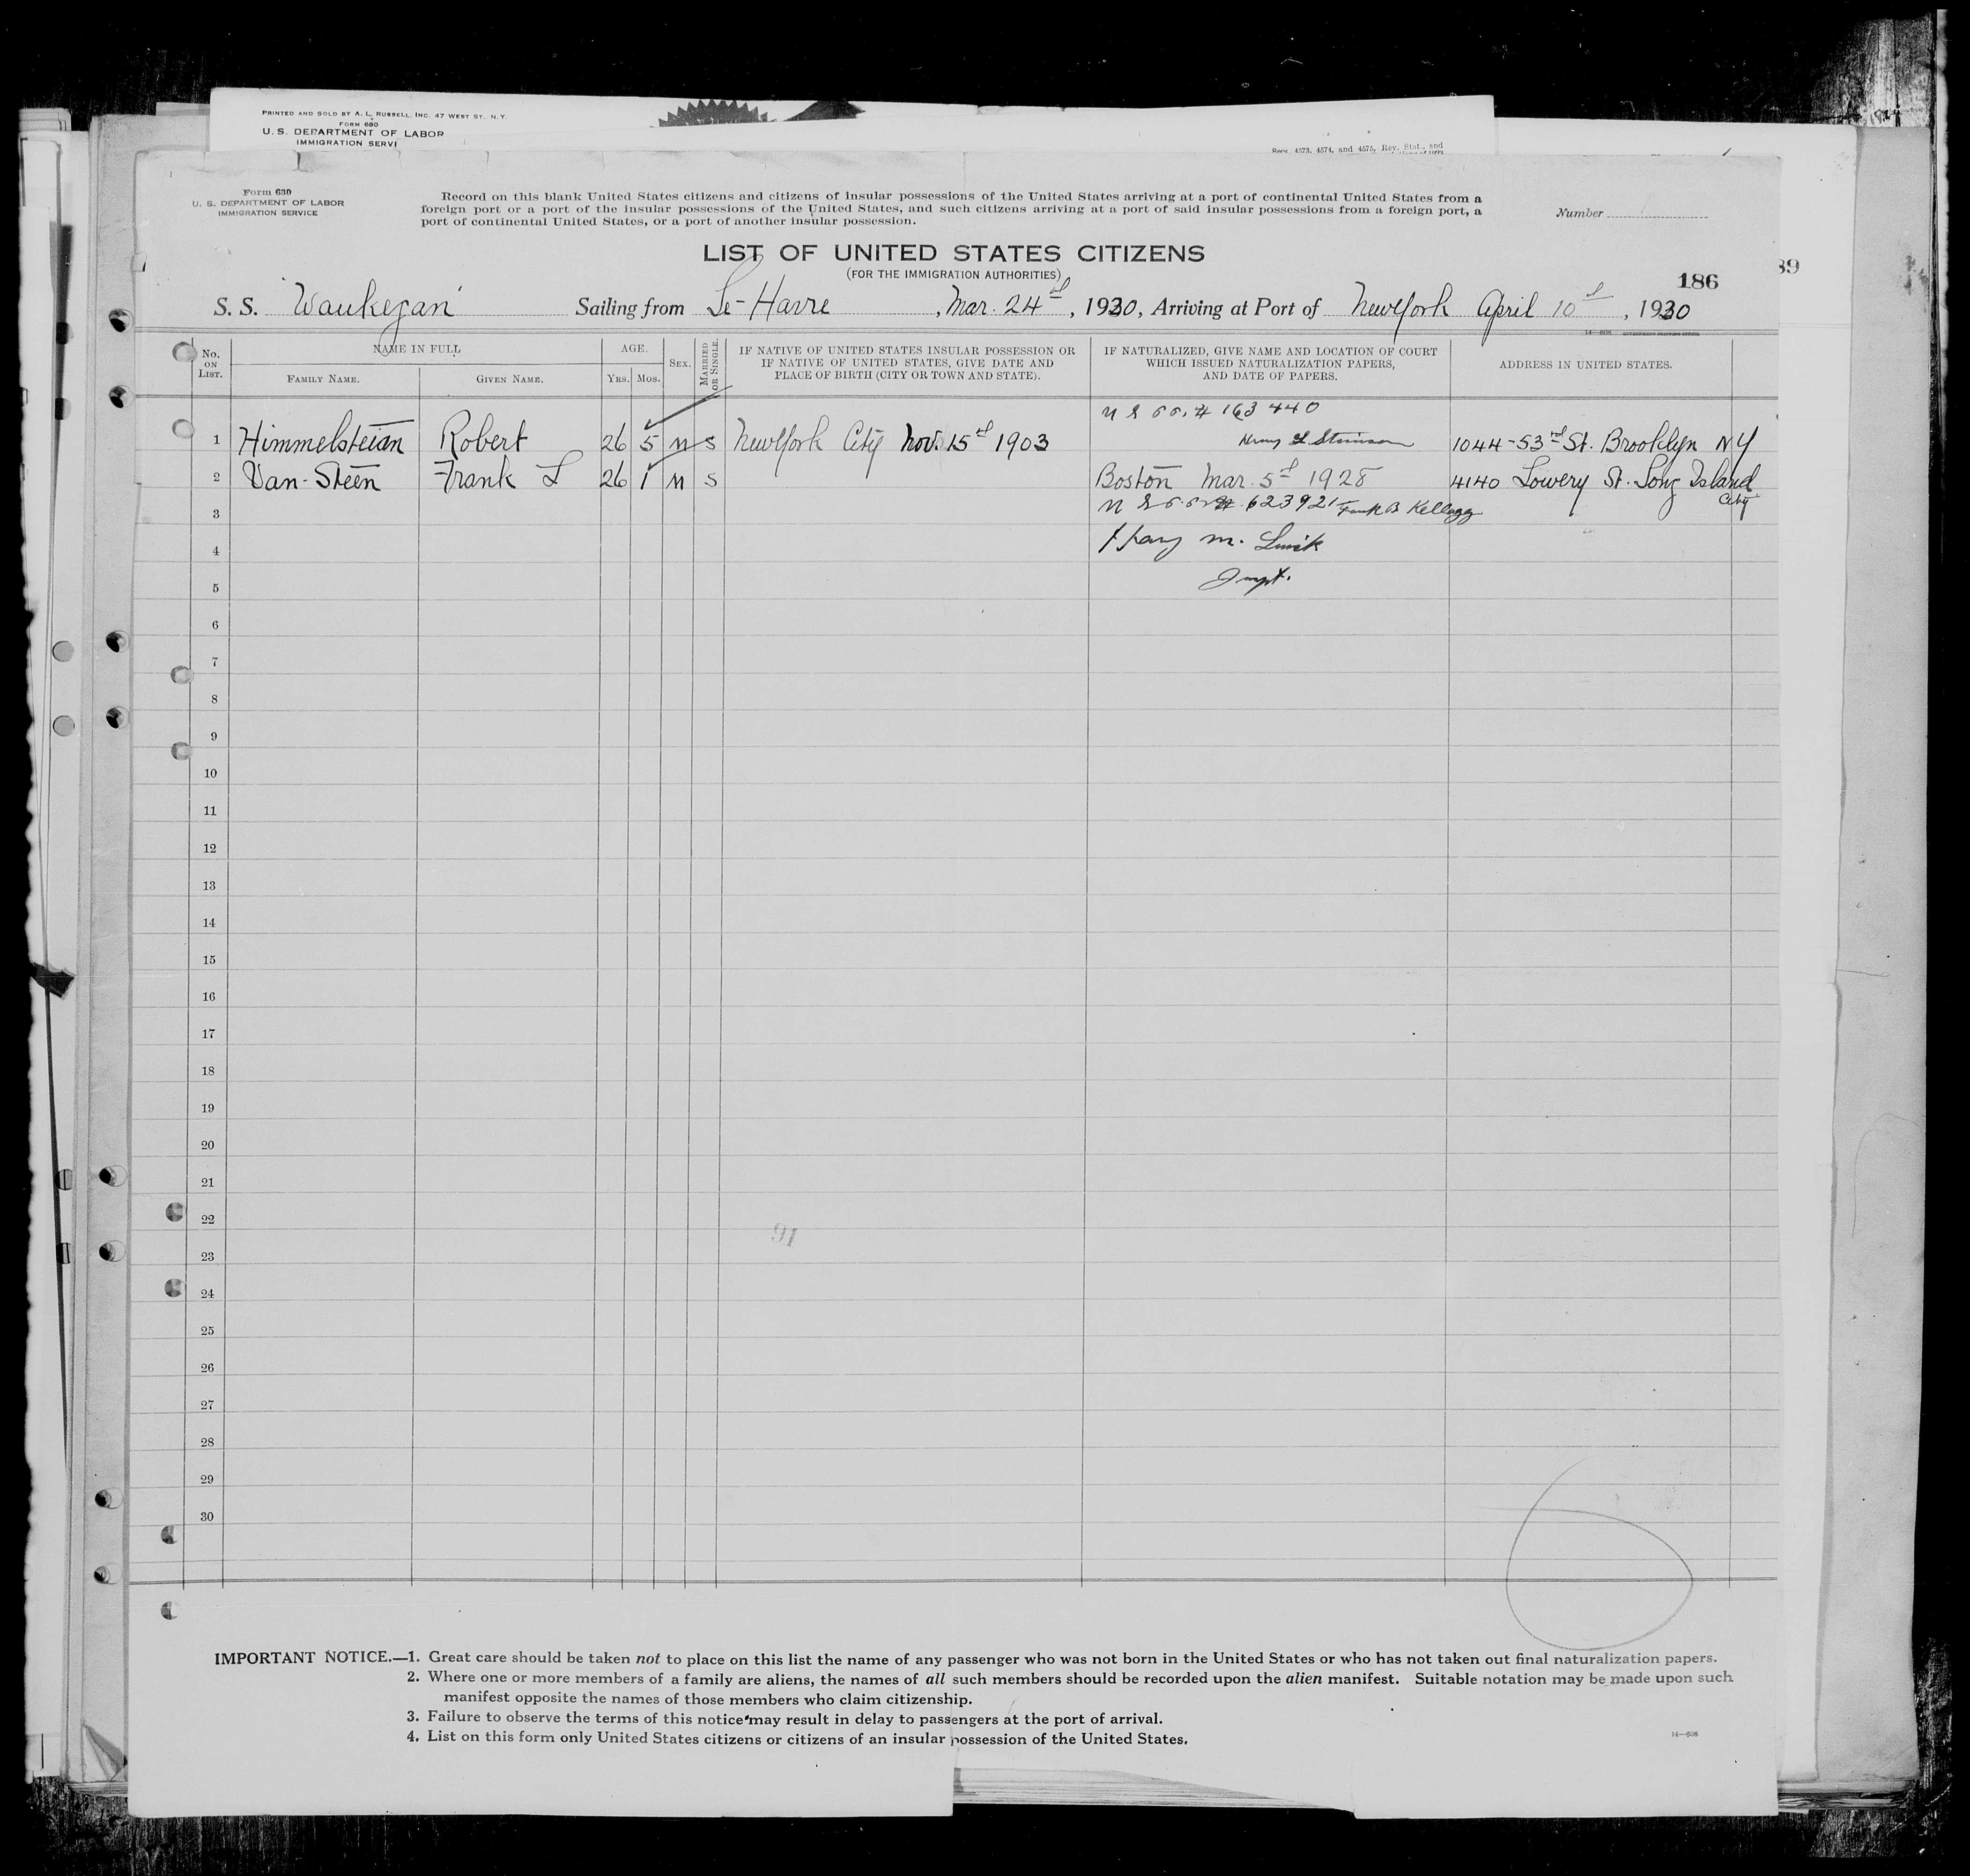 PRINTED AND SOLD BY A. L. RUSSELL, INC. 47 WEST ST., N.Y.
FORM 680
U. S. DEPARTMENT OF LABOR
IMMIGRATION SERVI
Recs. 4573, 4574, and 4575, Rev. Stat., and
Form 630
U. S. DEPARTMENT OF LABOR
IMMIGRATION SERVICE
Record on this blank United States citizens and citizens of insular possessions of the United States arriving at a port of continental United States from a
foreign port or a port of the insular possessions of the United States, and such citizens arriving at a port of said insular possessions from a foreign port, a
port of continental United States, or a port of another insular possession.
Number
LIST OF UNITED STATES CITIZENS
(FOR THE IMMIGRATION AUTHORITIES)
89
186
S. S. "Waukegan" Sailing from Le-Havre, Mar. 24th, 1930, Arriving at Port of New York April 10th, 1930
14—608 GOVERNMENT PRINTING OFFICE
No. ON LIST.
NAME IN FULL
FAMILY NAME. GIVEN NAME.
AGE.
YRS. MOS.
SEX.
MARRIED OR SINGLE.
IF NATIVE OF UNITED STATES INSULAR POSSESSION OR
IF NATIVE OF UNITED STATES, GIVE DATE AND
PLACE OF BIRTH (CITY OR TOWN AND STATE).
IF NATURALIZED, GIVE NAME AND LOCATION OF COURT
WHICH ISSUED NATURALIZATION PAPERS,
AND DATE OF PAPERS.
ADDRESS IN UNITED STATES.
# 163440
1 Himmelsteian Robert 26 5 M S New York City Nov. 15th 1903 Stimson 1044-53rd St. Brooklyn NY
2 Van-Steen Frank L 26 1 M S Boston Mar. 5th 1928 4140 Lowery St. Long Island City
3 # 623921 Frank B Kellogg
4 Harry M.
5 Inspt.
6
7
8
9
10
11
12
13
14
15
16
17
18
19
20
21
22
91
23
24
25
26
27
28
29
30
IMPORTANT NOTICE.—1. Great care should be taken not to place on this list the name of any passenger who was not born in the United States or who has not taken out final naturalization papers.
2. Where one or more members of a family are aliens, the names of all such members should be recorded upon the alien manifest. Suitable notation may be made upon such
manifest opposite the names of those members who claim citizenship.
3. Failure to observe the terms of this notice may result in delay to passengers at the port of arrival.
4. List on this form only United States citizens or citizens of an insular possession of the United States.
14—608